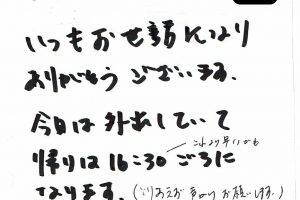 いつもお世話になり
ありがとうございます。
今日は外出していて
これより早いかも
帰りは16:30ごろに
なります。(とりあえず 声かけ お願いします。)